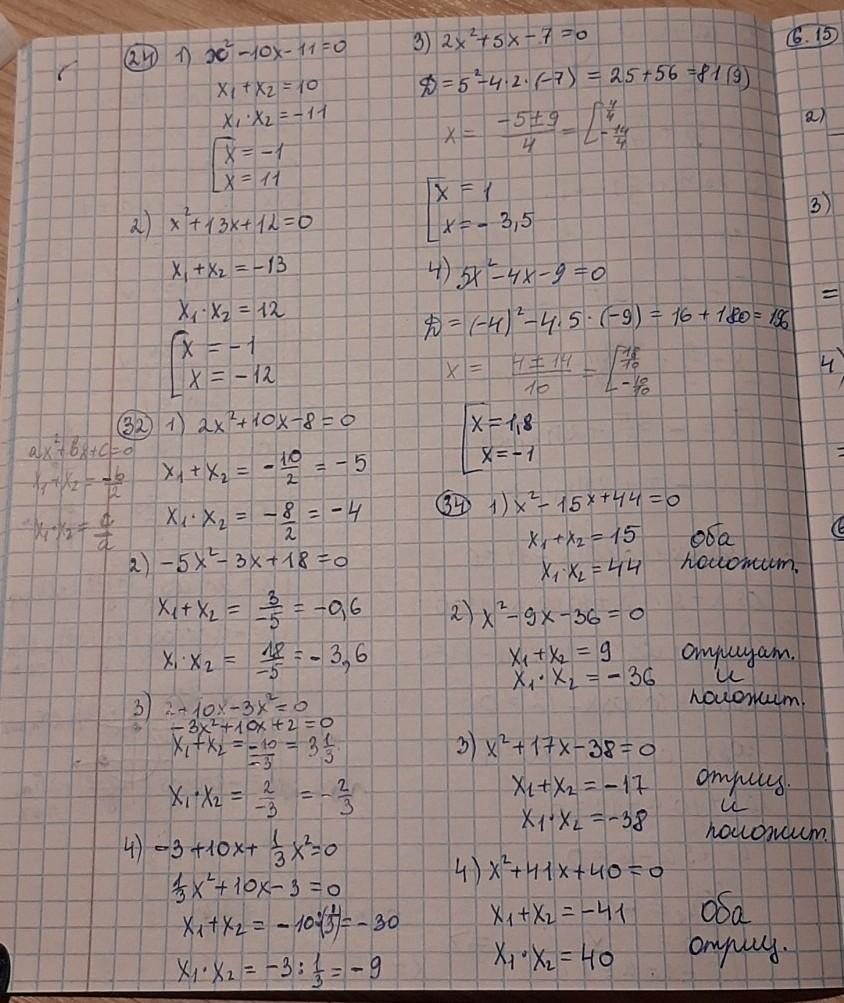 24) 1) x² - 10x - 11 = 0
x₁ + x₂ = 10
x₁ · x₂ = -11
[x = -1
x = 11
2) x² + 13x + 12 = 0
x₁ + x₂ = -13
x₁ · x₂ = 12
[x = -1
x = -12
32) 1) 2x² + 10x - 8 = 0
x₁ + x₂ = -10/2 = -5
x₁ · x₂ = -8/2 = -4
ax² + bx + c = 0
x₁ + x₂ = -b/2
x₁ · x₂ = c/a
2) -5x² - 3x + 18 = 0
x₁ + x₂ = 3/-5 = -0,6
x₁ · x₂ = 18/-5 = -3,6
3) 2 + 10x - 3x² = 0
-3x² + 10x + 2 = 0
x₁ + x₂ = -10/-3 = 3 1/3
x₁ · x₂ = 2/-3 = -2/3
4) -3 + 10x + 1/3 x² = 0
1/3 x² + 10x - 3 = 0
x₁ + x₂ = -10:(1/3) = -30
x₁ · x₂ = -3 : 1/3 = -9
3) 2x² + 5x - 7 = 0
D = 5² - 4 · 2 · (-7) = 25 + 56 = 81 (9)
x = (-5 ± 9)/4 = [4/4
-14/4
[x = 1
x = -3,5
4) 5x² - 4x - 9 = 0
D = (-4)² - 4 · 5 · (-9) = 16 + 180 = 196
x = (4 ± 14)/10 = [18/10
-10/10
[x = 1,8
x = -1
34) 1) x² - 15x + 44 = 0
x₁ + x₂ = 15 оба
x₁ · x₂ = 44 положит.
2) x² - 9x - 36 = 0
x₁ + x₂ = 9 отрицат.
x₁ · x₂ = -36 и
положит.
3) x² + 17x - 38 = 0
x₁ + x₂ = -17 отриц.
и
x₁ · x₂ = -38
положит.
4) x² + 41x + 40 = 0
x₁ + x₂ = -41 Оба
x₁ · x₂ = 40 отриц.
6.15
2)
3)
=
4)